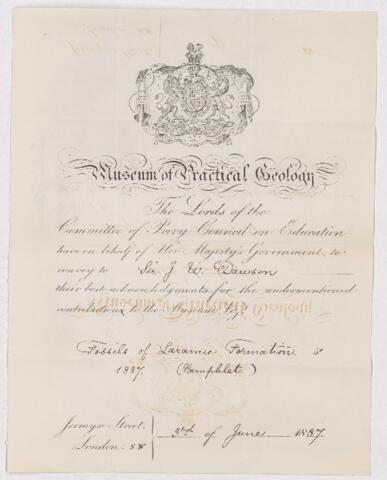 Museum of Practical Geology
The Lords of the
Committee of Privy Council on Education
have on behalf of Her Majesty's Government, to
convey to Sir J. W. Dawson
their best acknowledgments for the undermentioned
contributions to the Museum.
Fossils of Laramie Formation
1887. (Pamphlet)
Jermyn Street. 3rd of June 1887.
London. S.W